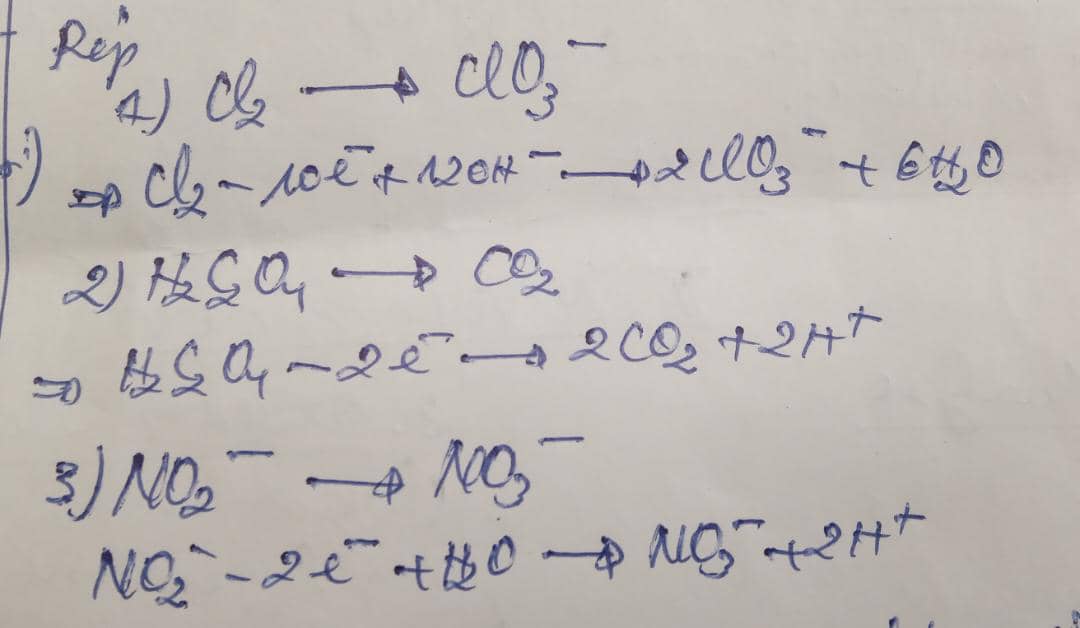 Rép
1) Cl₂ → ClO₃⁻
⇒ Cl₂ - 10e⁻ + 12OH⁻ → 2ClO₃⁻ + 6H₂O
2) H₂C₂O₄ → CO₂
⇒ H₂C₂O₄ - 2e⁻ → 2CO₂ + 2H⁺
3) NO₂⁻ → NO₃⁻
NO₂⁻ - 2e⁻ + H₂O → NO₃⁻ + 2H⁺